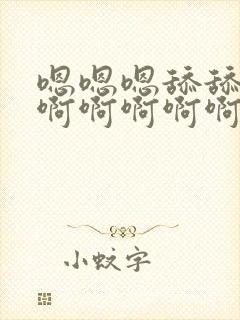 嗯嗯嗯舔舔
啊啊啊啊啊
小蚊字